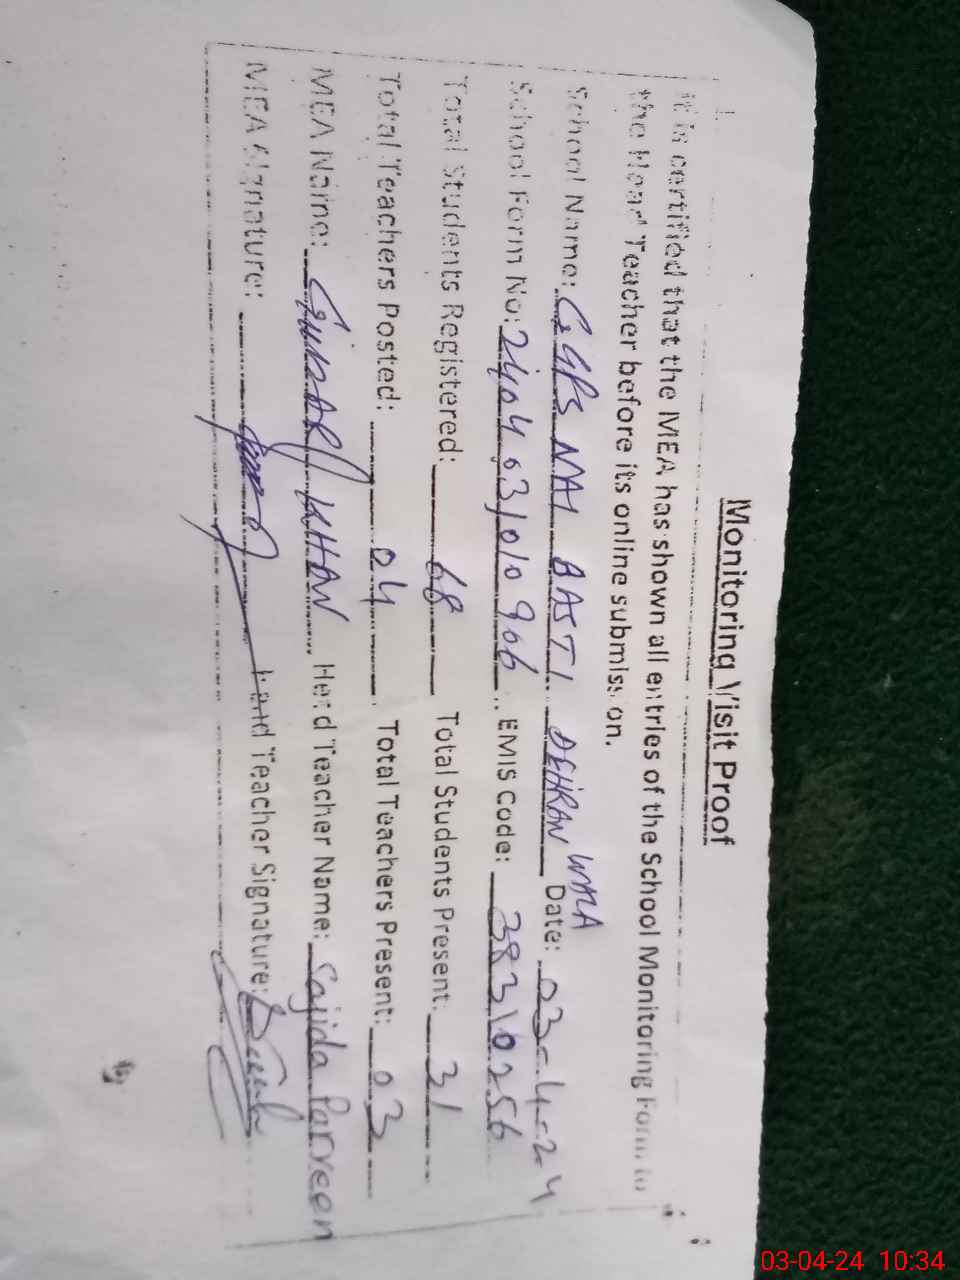 Monitoring Visit Proof
It is certified that the MEA has shown all entries of the School Monitoring Form to
the Head Teacher before its online submission.
School Name: GGPS NAI BASTI DEHRAN WALA Date: 03-4-24
School Form No: 2404 031010 906 EMIS Code: 38310256
Total Students Registered: 68 Total Students Present: 31
Total Teachers Posted: 04 Total Teachers Present: 03
MEA Name: GULZAR KHAN Head Teacher Name: Sajida Parveen
MEA Signature: Head Teacher Signature:
03-04-24 10:34